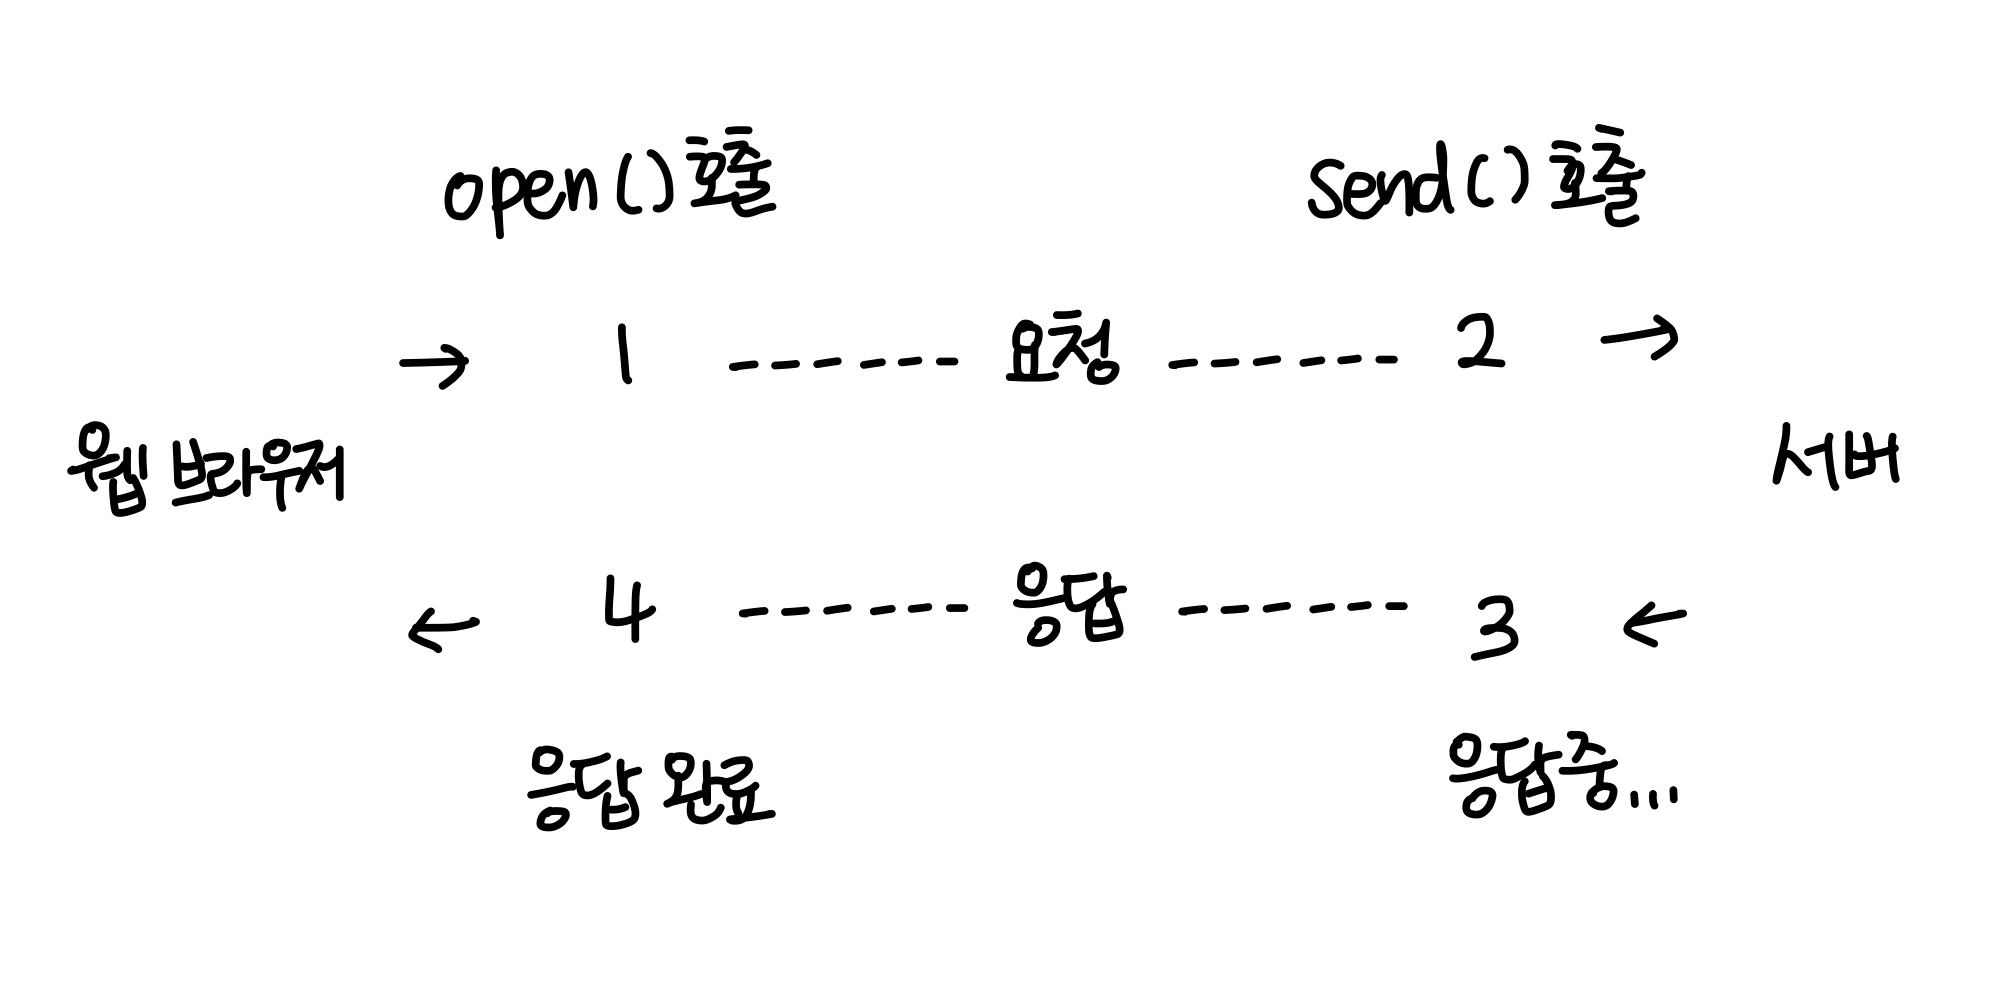 open() 호출 send() 호출
→ 1 ------ 요청 ------ 2 →
웹 브라우저 서버
← 4 ------ 응답 ------ 3 ←
응답 완료 응답중...